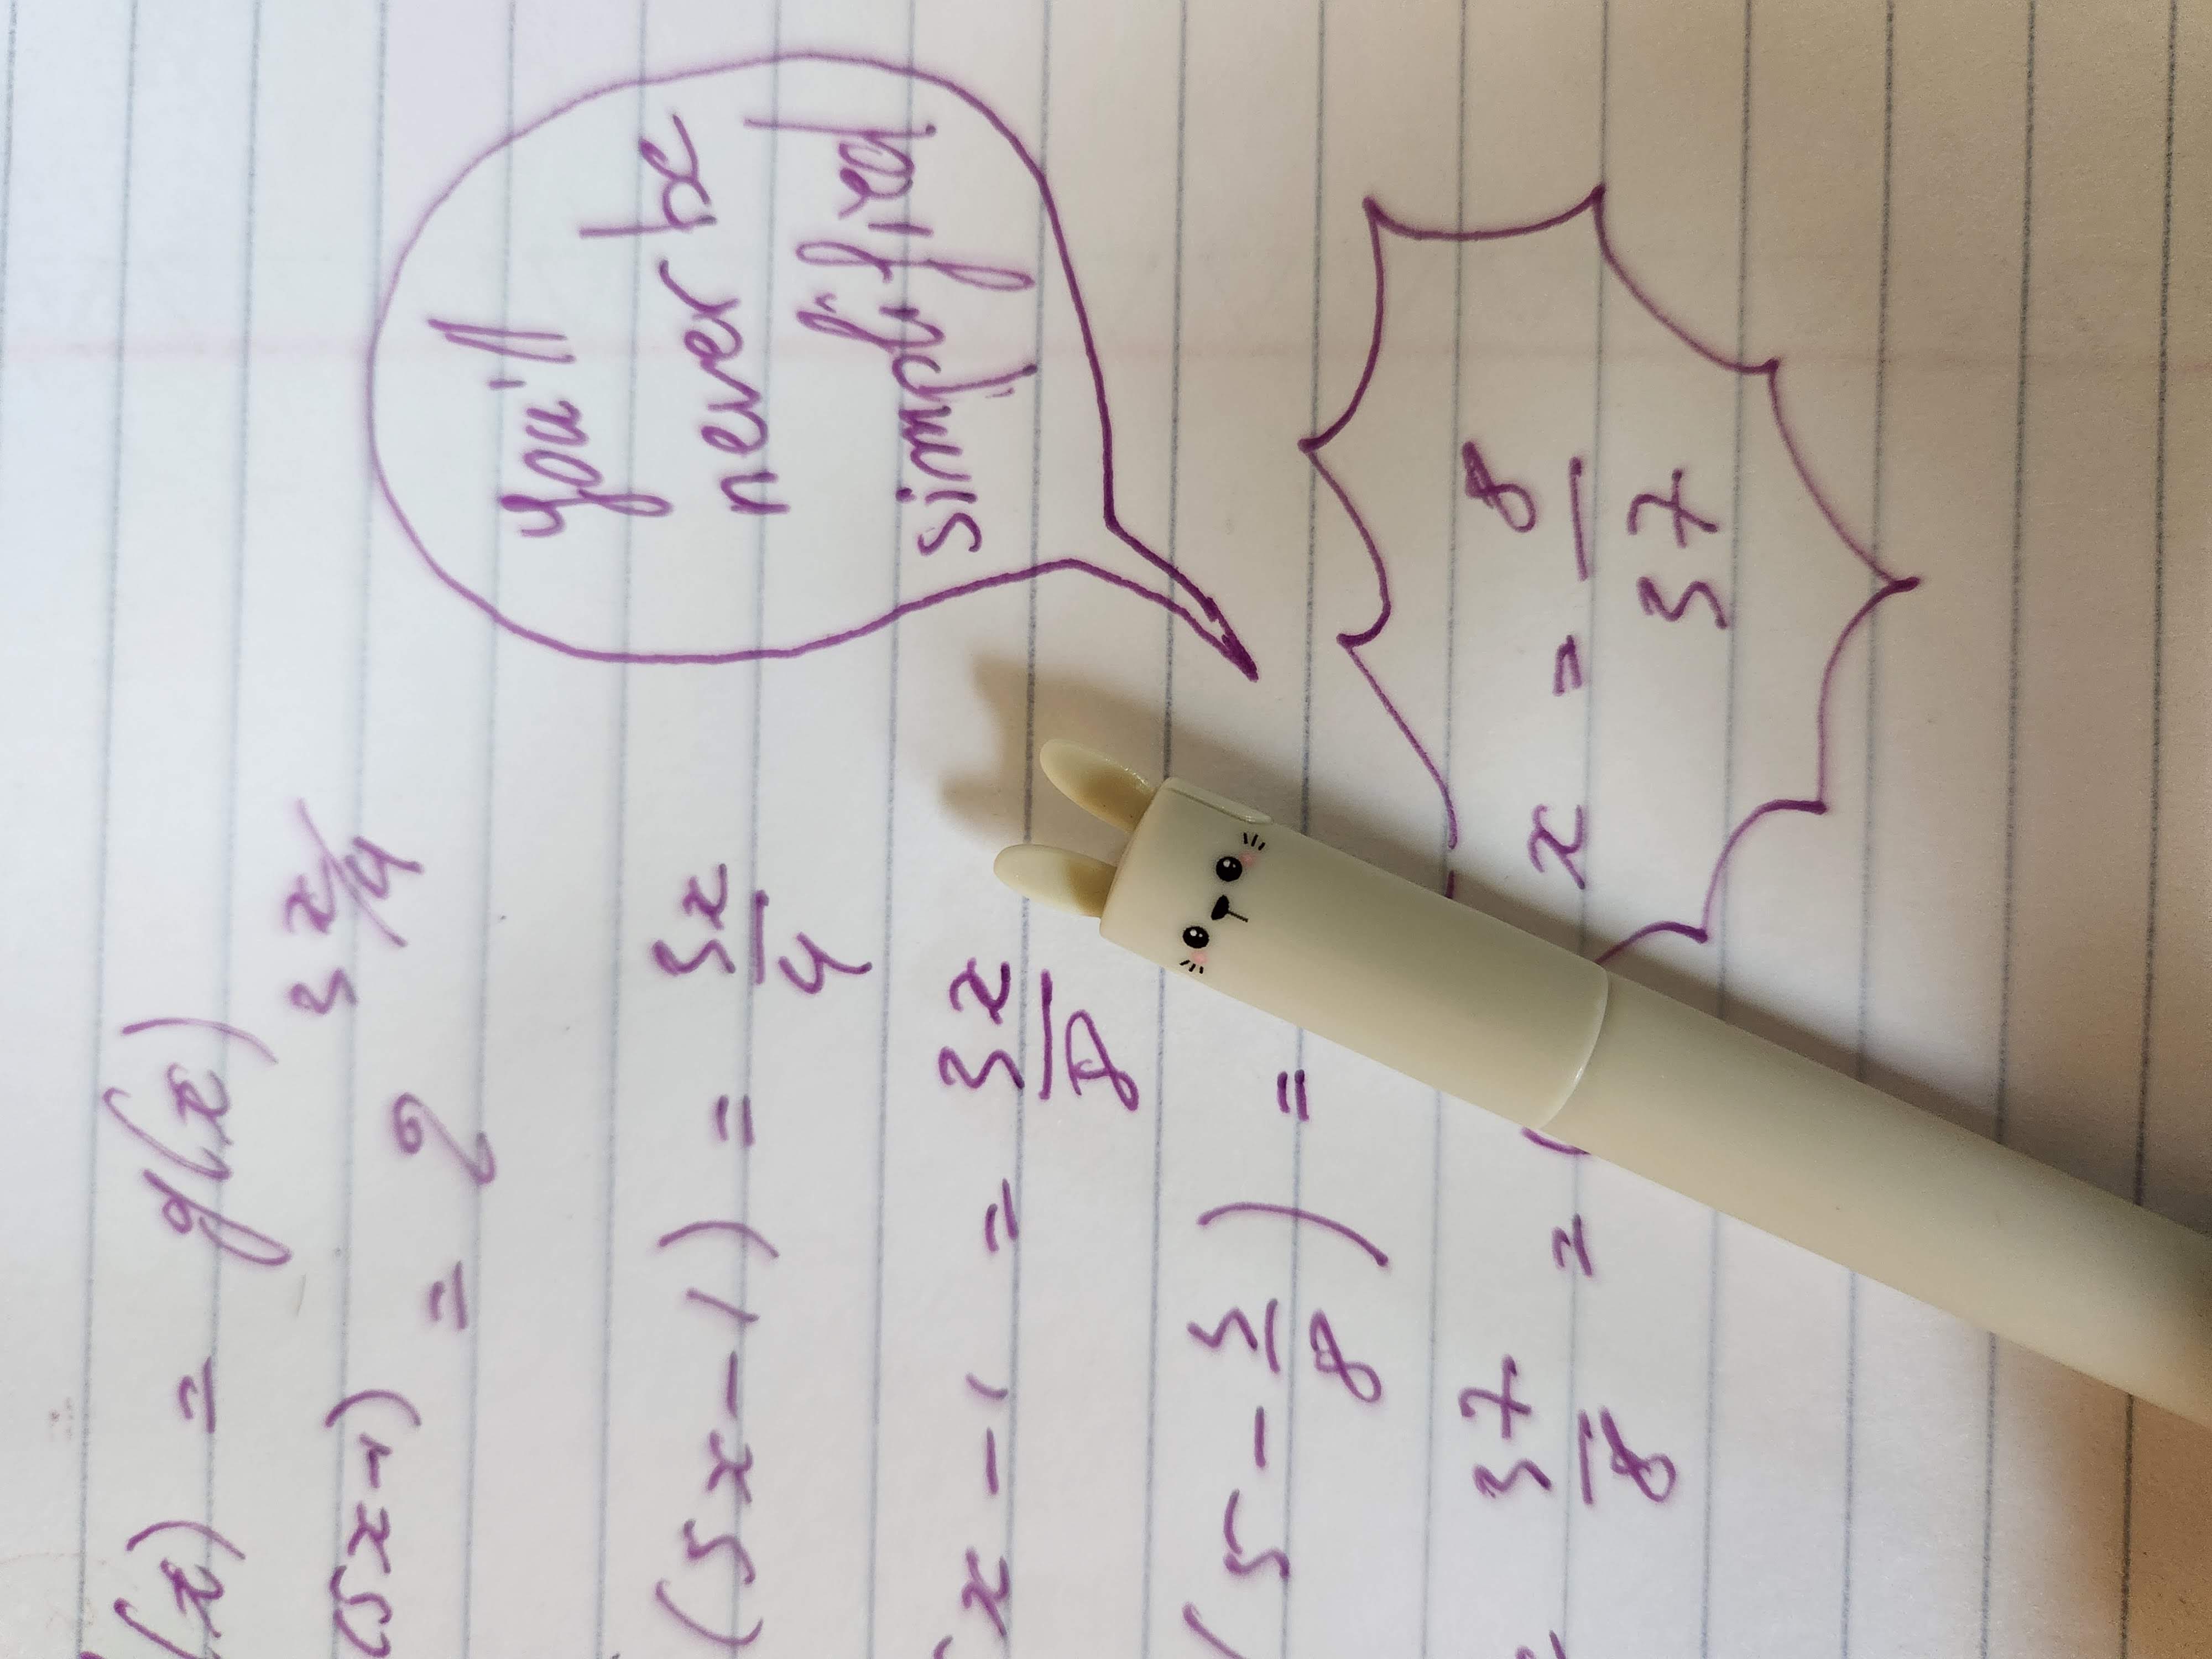 (x) = g(x)
(5x-1) = 2 3x/4
(5x-1) = 3x/4
x-1 = 3x/8
(5 - 3/8) =
37/8 = (
x = 8/37
you'll
never be
simplified